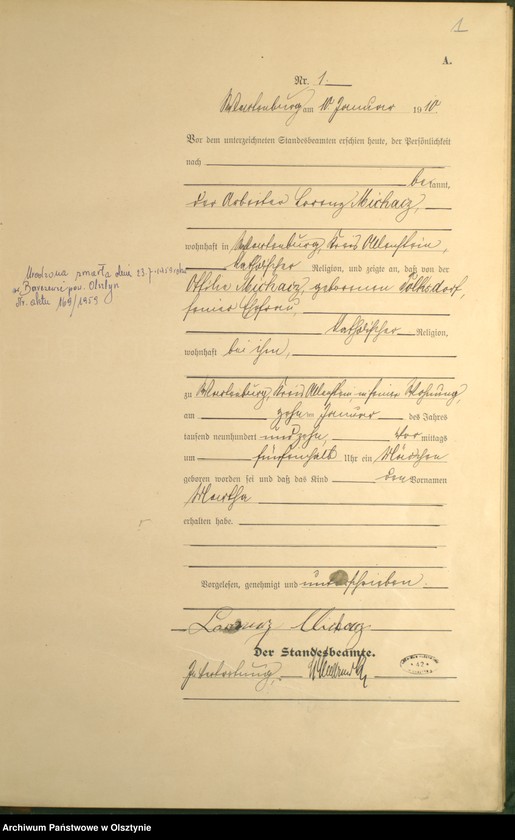 1
A.
Nr. 1.
Wartenburg am 10. Januar 1910
Vor dem unterzeichneten Standesbeamten erschien heute, der Persönlichkeit
nach
bekannt,
der Arbeiter Lorenz Michacz,
wohnhaft in Wartenburg, Kreis Allenstein,
katholischer Religion, und zeigte an, daß von der
Michacz, geborenen Tolksdorf,
seiner Ehefrau,
katholischer Religion,
wohnhaft bei ihm,
zu Wartenburg, Kreis Allenstein, in seiner Wohnung,
am zehnten Januar des Jahres
tausend neunhundert und zehn, Vormittags
um Uhr ein Mädchen
geboren worden sei und daß das Kind den Vornamen
Martha
erhalten habe.
Vorgelesen, genehmigt und unterschrieben
Lorenz Michacz
Der Standesbeamte.
In Vertretung,
zmarła dnia 23.7.1959
w Barczewie pow. Olsztyn
Nr. aktu 169/1959
Archiwum Państwowe w Olsztynie